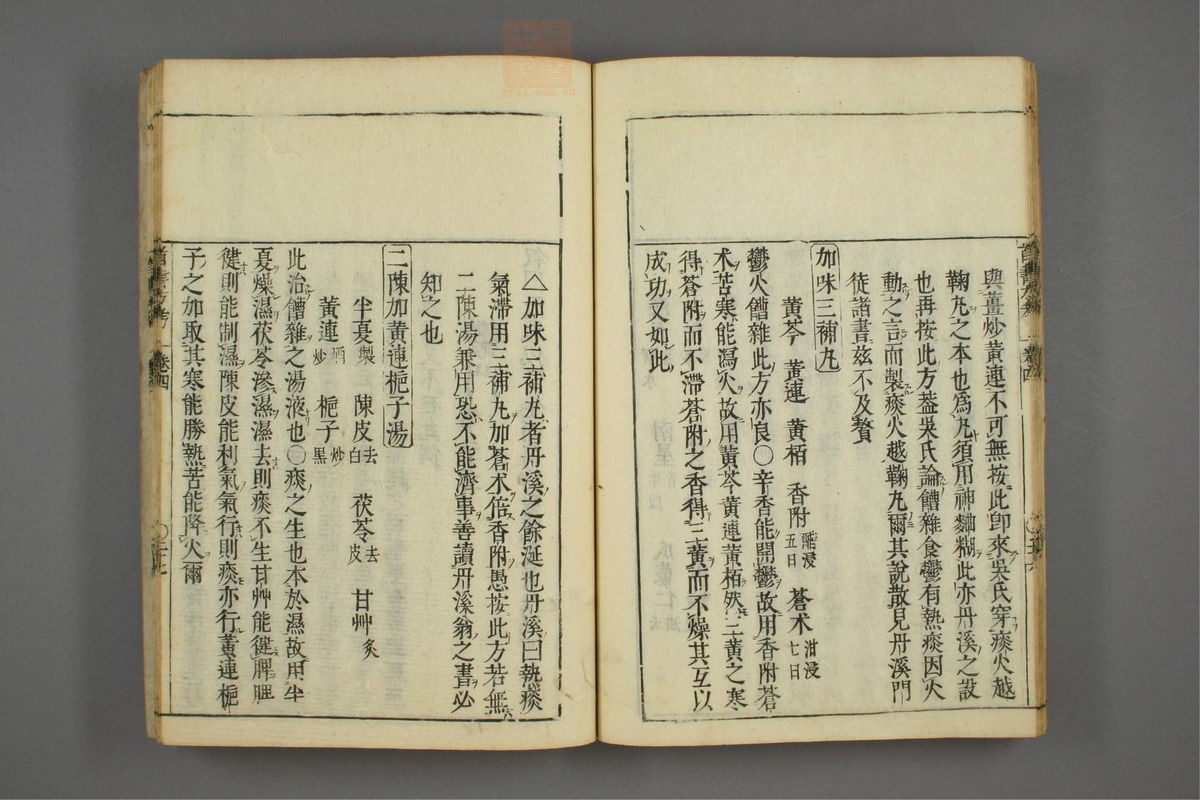 與薑炒黃連不可無按此卽來吳氏穿痰火越
鞠丸之本也爲丸須用神麯糊此亦丹溪之設
也再按此方葢吳氏論饐雜食鬱有熱痰因火
動之言而製痰火越鞠丸爾其說散見丹溪門
徒諸書茲不及贅
加味三補丸
黃芩 黃連 黃栢 香附醋浸五日 蒼术泔浸七日
鬱火饐雜此方亦良〇辛香能開鬱故用香附蒼
术苦寒能瀉火故用黃芩黃連黃栢然三黃之寒
得蒼附而不滯蒼附之香得三黃而不燥其互以
成功又如此
△加味三補丸者丹溪之餘涎也丹溪曰熱痰
氣滯用三補丸加蒼术倍香附愚按此方若無
二陳湯兼用恐不能濟事善讀丹溪翁之書必
知之也
二陳加黃連梔子湯
半夏製 陳皮去白 茯苓去皮 甘艸炙
黃連酒炒 梔子炒黑
此治饐雜之湯液也〇痰之生也本於濕故用半
夏燥濕茯苓滲濕濕去則痰不生甘艸能健脾脾
健則能制濕陳皮能利氣氣行則痰亦行黃連梔
子之加取其寒能勝熱苦能降火爾
卷四
卷四